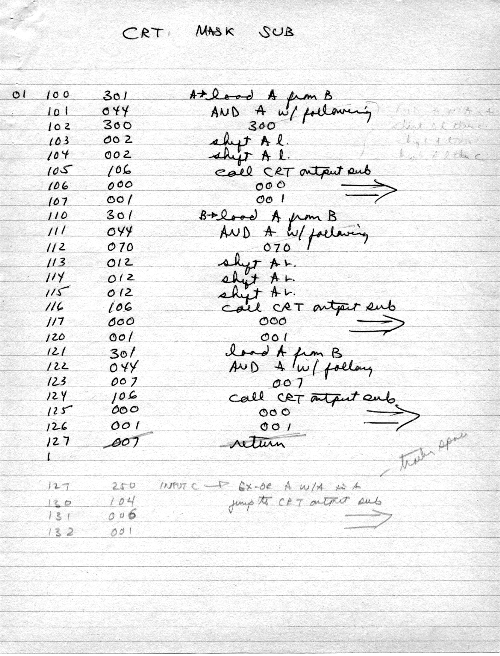 CRT MASK SUB
01 100 301 A→load A from B
101 044 AND A w/ following
102 300 300
103 002 shift A l.
104 002 shift A l.
105 106 call CRT output sub
106 000 000
107 001 001
110 301 B→load A from B
111 044 AND A w/ following
112 070 070
113 012 shift A r.
114 012 shift A r.
115 012 shift A r.
116 106 call CRT output sub
117 000 000
120 001 001
121 301 load A from B
122 044 AND A w/ follong
123 007 007
124 106 call CRT output sub
125 000 000
126 001 001
127 007 return
127 250 INPUT C → EX-OR A W/A
130 104 jump to CRT output sub
131 006
132 001